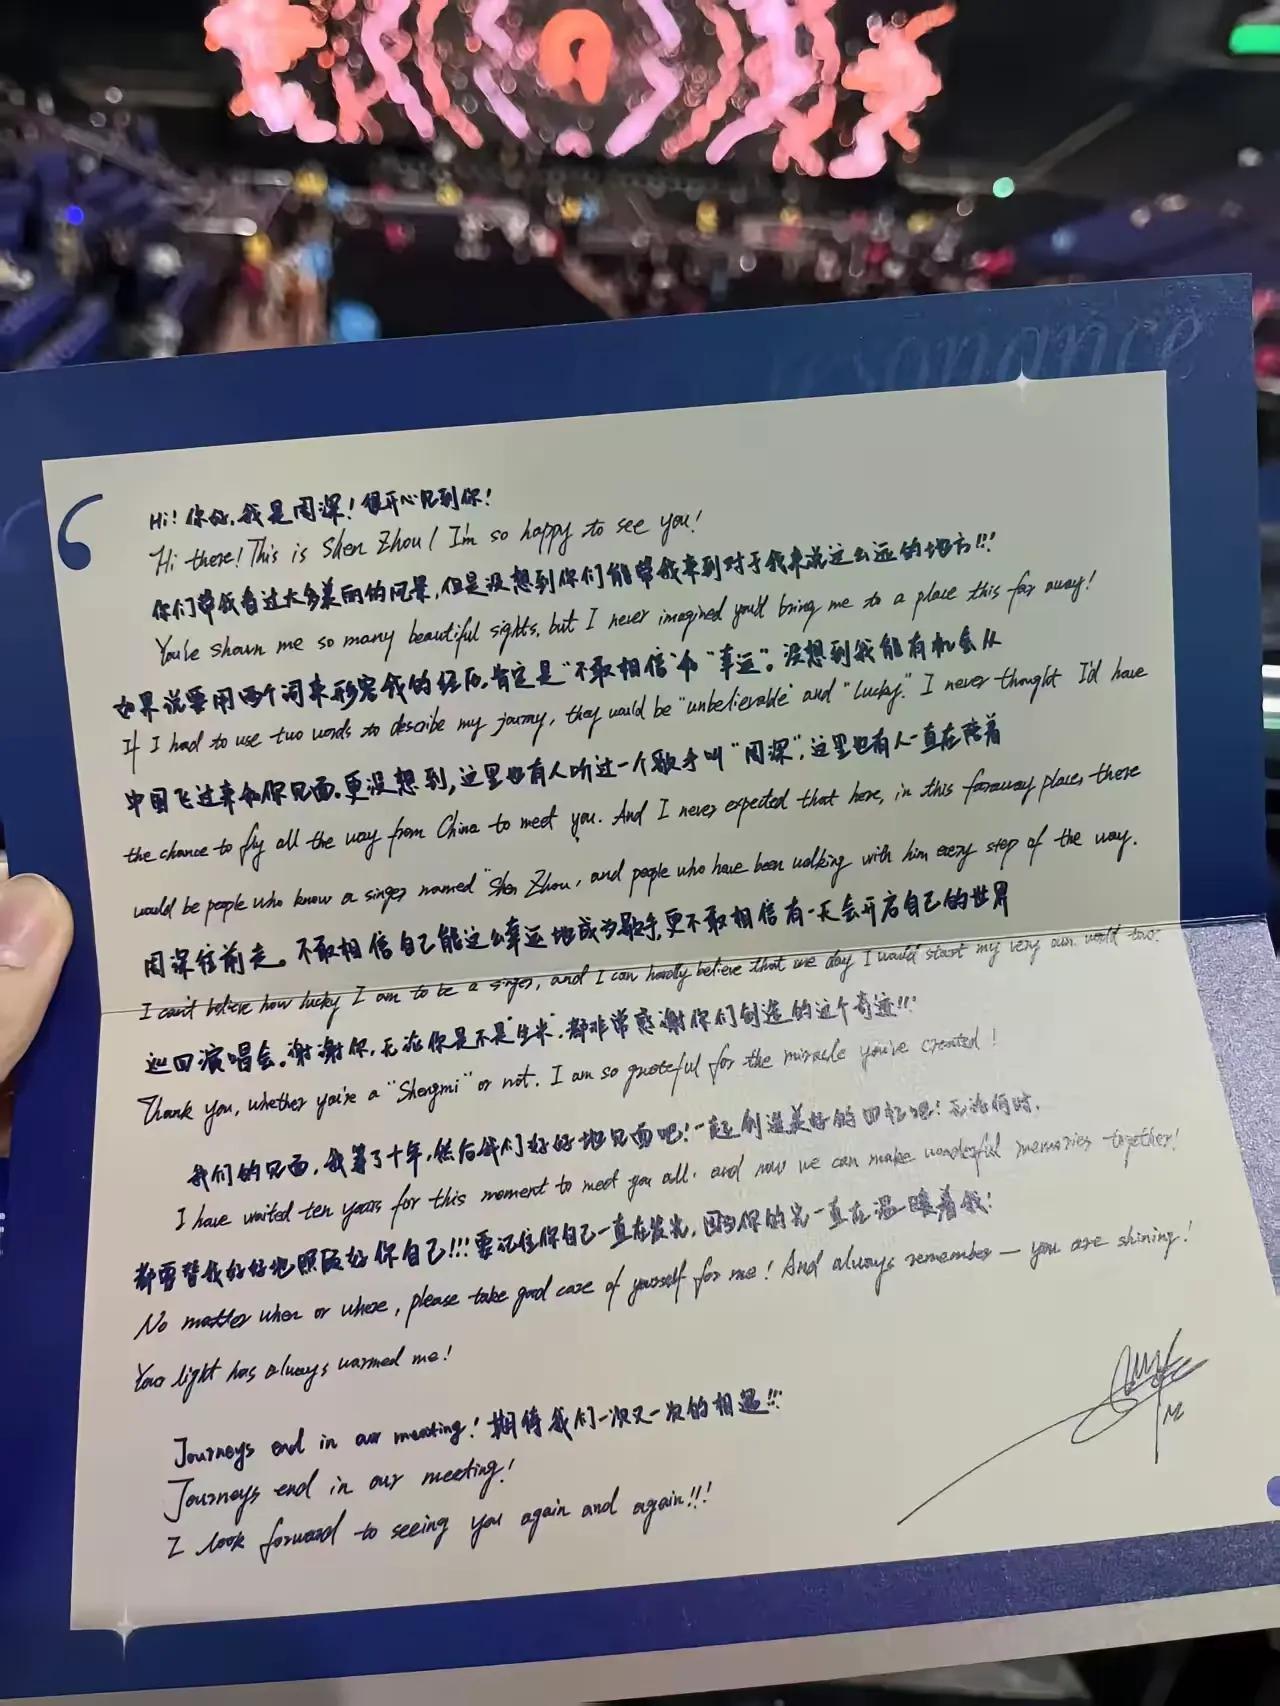 resonance
Hi! 你好,我是周深!很开心见到你!
Hi there! This is Shen Zhou! I'm so happy to see you!
你们带我看过太多美丽的风景,但是没想到你们能带我来到对于我来说这么远的地方!!!
You've shown me so many beautiful sights, but I never imagined you'd bring me to a place this far away!
如果说要用两个词来形容我的经历,肯定是“不敢相信”和“幸运”。没想到我能有机会从
If I had to use two words to describe my journy, they would be "unbelievable" and "lucky." I never thought I'd have
中国飞过来和你见面,更没想到,这里也有人听过一个歌手叫“周深”,这里也有人一直在陪着
the chance to fly all the way from China to meet you. And I never expected that here, in this faraway place, there
would be people who know a singer named "Shen Zhou, and people who have been walking with him every step of the way.
周深往前走。不敢相信自己能这么幸运地成为歌手,更不敢相信有一天会开启自己的世界
I can't believe how lucky I am to be a singer, and I can hardly believe that one day I would start my very own world tour.
巡回演唱会。谢谢你,无论你是不是“生米”,都非常感谢你们创造的这个奇迹!!!
Thank you, whether you're a "Shengmi" or not. I am so grateful for the miracle you've created!
我们的见面,我等了十年,然后我们好好地见面吧!一起创造美好的回忆吧!无论何时,
I have waited ten years for this moment to meet you all. and now we can make wonderful memories together!
都要替我好好地照顾好你自己!!!要记住你自己一直在发光,因为你的光一直在温暖着我!
No matter when or where, please take good care of yourself for me! And always remember — you are shining!
Your light has always warmed me!
Journeys end in our meeting! 期待我们一次又一次的相遇!!!
Journeys end in our meeting!
I look forward to seeing you again and again!!!